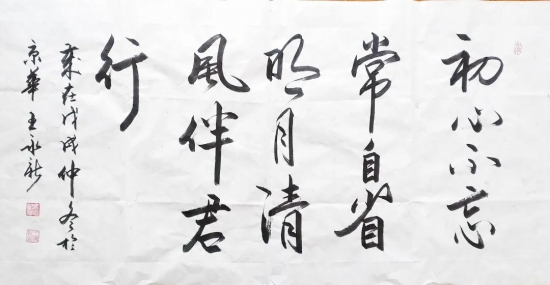 初心不忘
常自省
明月清
風伴君
行
歲在戊戌仲冬於
京華王永新